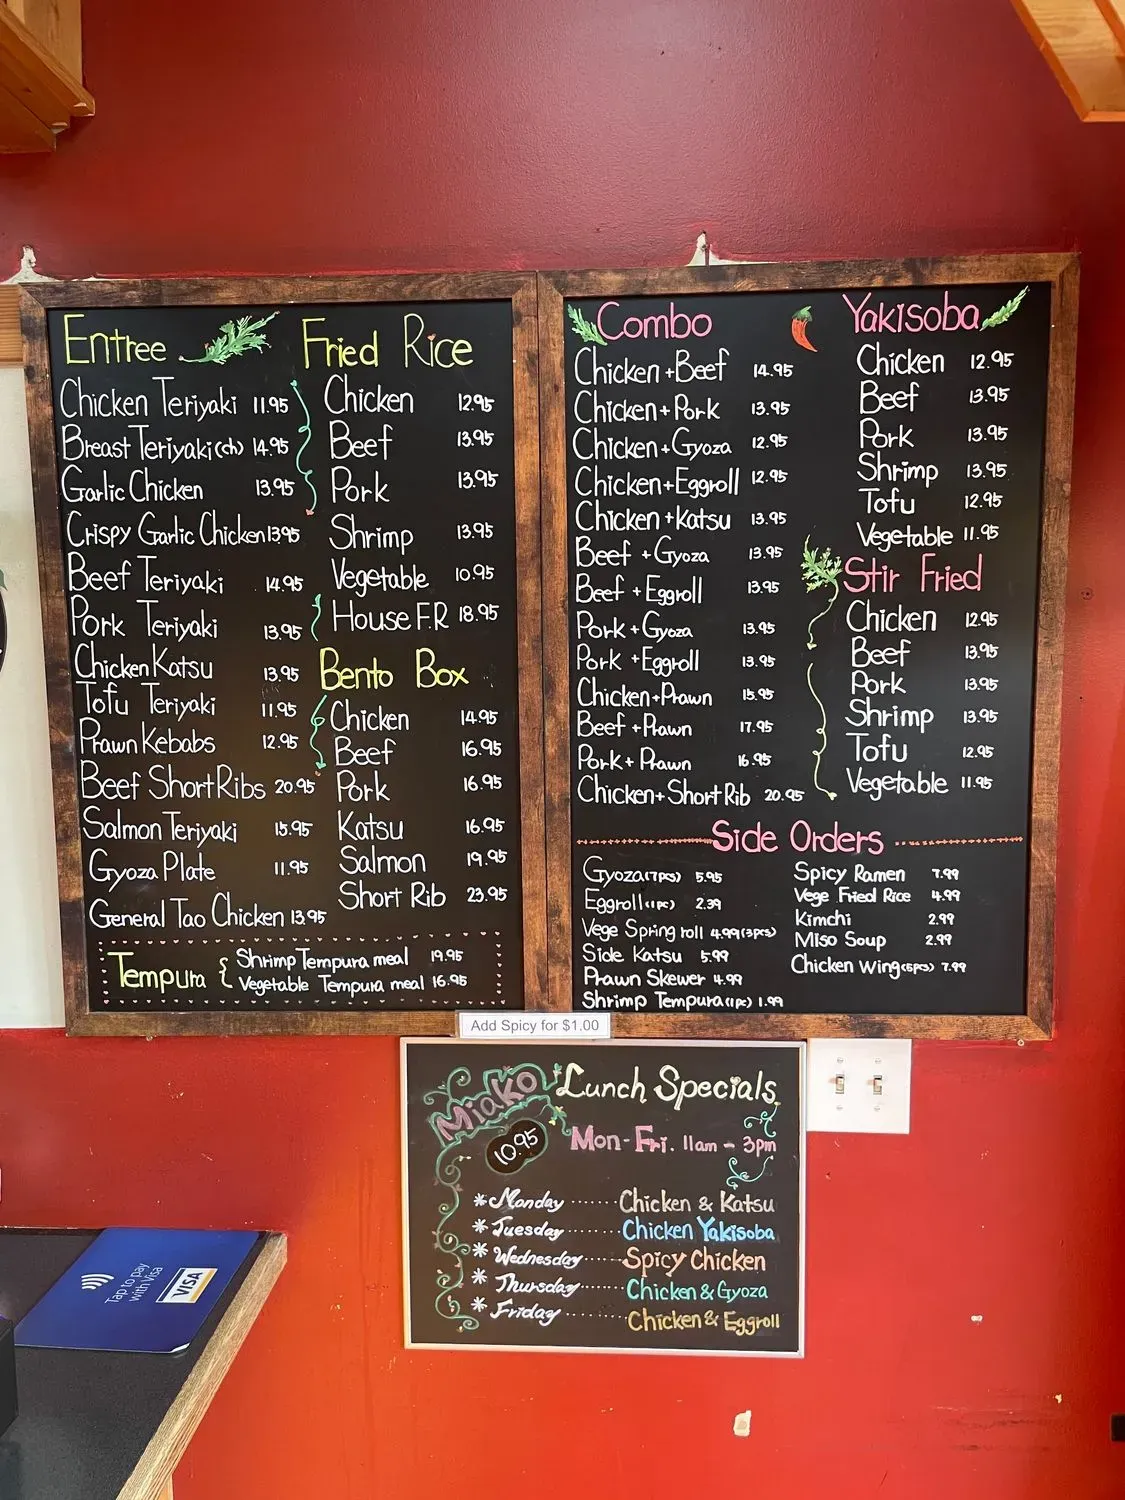 Entree
Chicken Teriyaki 11.95
Breast Teriyaki (ch) 14.95
Garlic Chicken 13.95
Crispy Garlic Chicken 13.95
Beef Teriyaki 14.95
Pork Teriyaki 13.95
Chicken Katsu 13.95
Tofu Teriyaki 11.95
Prawn Kebabs 12.95
Beef Short Ribs 20.95
Salmon Teriyaki 15.95
Gyoza Plate 11.95
General Tao Chicken 13.95
Fried Rice
Chicken 12.95
Beef 13.95
Pork 13.95
Shrimp 13.95
Vegetable 10.95
House F.R 18.95
Bento Box
Chicken 14.95
Beef 16.95
Pork 16.95
Katsu 16.95
Salmon 19.95
Short Rib 23.95
Tempura { Shrimp Tempura meal 19.95
Vegetable Tempura meal 16.95
Combo
Chicken + Beef 14.95
Chicken + Pork 13.95
Chicken + Gyoza 12.95
Chicken + Eggroll 12.95
Chicken + Katsu 13.95
Beef + Gyoza 13.95
Beef + Eggroll 13.95
Pork + Gyoza 13.95
Pork + Eggroll 13.95
Chicken + Prawn 15.95
Beef + Prawn 17.95
Pork + Prawn 16.95
Chicken + Short Rib 20.95
Yakisoba
Chicken 12.95
Beef 13.95
Pork 13.95
Shrimp 13.95
Tofu 12.95
Vegetable 11.95
Stir Fried
Chicken 12.95
Beef 13.95
Pork 13.95
Shrimp 13.95
Tofu 12.95
Vegetable 11.95
Side Orders
Gyoza (7pcs) 5.95
Eggroll (1pc) 2.39
Vege Spring roll 4.99 (3pcs)
Side Katsu 5.99
Prawn Skewer 4.99
Shrimp Tempura (1pc) 1.99
Spicy Ramen 7.99
Vege Fried Rice 4.99
Kimchi 2.99
Miso Soup 2.99
Chicken Wing (5pcs) 7.99
Add Spicy for $1.00
Miako Lunch Specials
10.95
Mon - Fri. 11am - 3pm
* Monday ...... Chicken & Katsu
* Tuesday ...... Chicken Yakisoba
* Wednesday ...... Spicy Chicken
* Thursday ...... Chicken & Gyoza
* Friday ...... Chicken & Eggroll
Tap to pay
with Visa
VISA